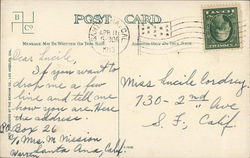 B
Co
POST CARD
MESSAGE MAY BE WRITTEN ON THIS SIDE
ADDRESS ONLY ON THIS SIDE
APR 14
5-
Dear Lucile,
If you want to
drop me a few
line and tell me
how you are. Here
the address.
PO Box 26
c/o Mrs. M Mission
Santa Ana Calif
Miss Lucile Cordrey
730-2nd Ave
S.F., Calif.